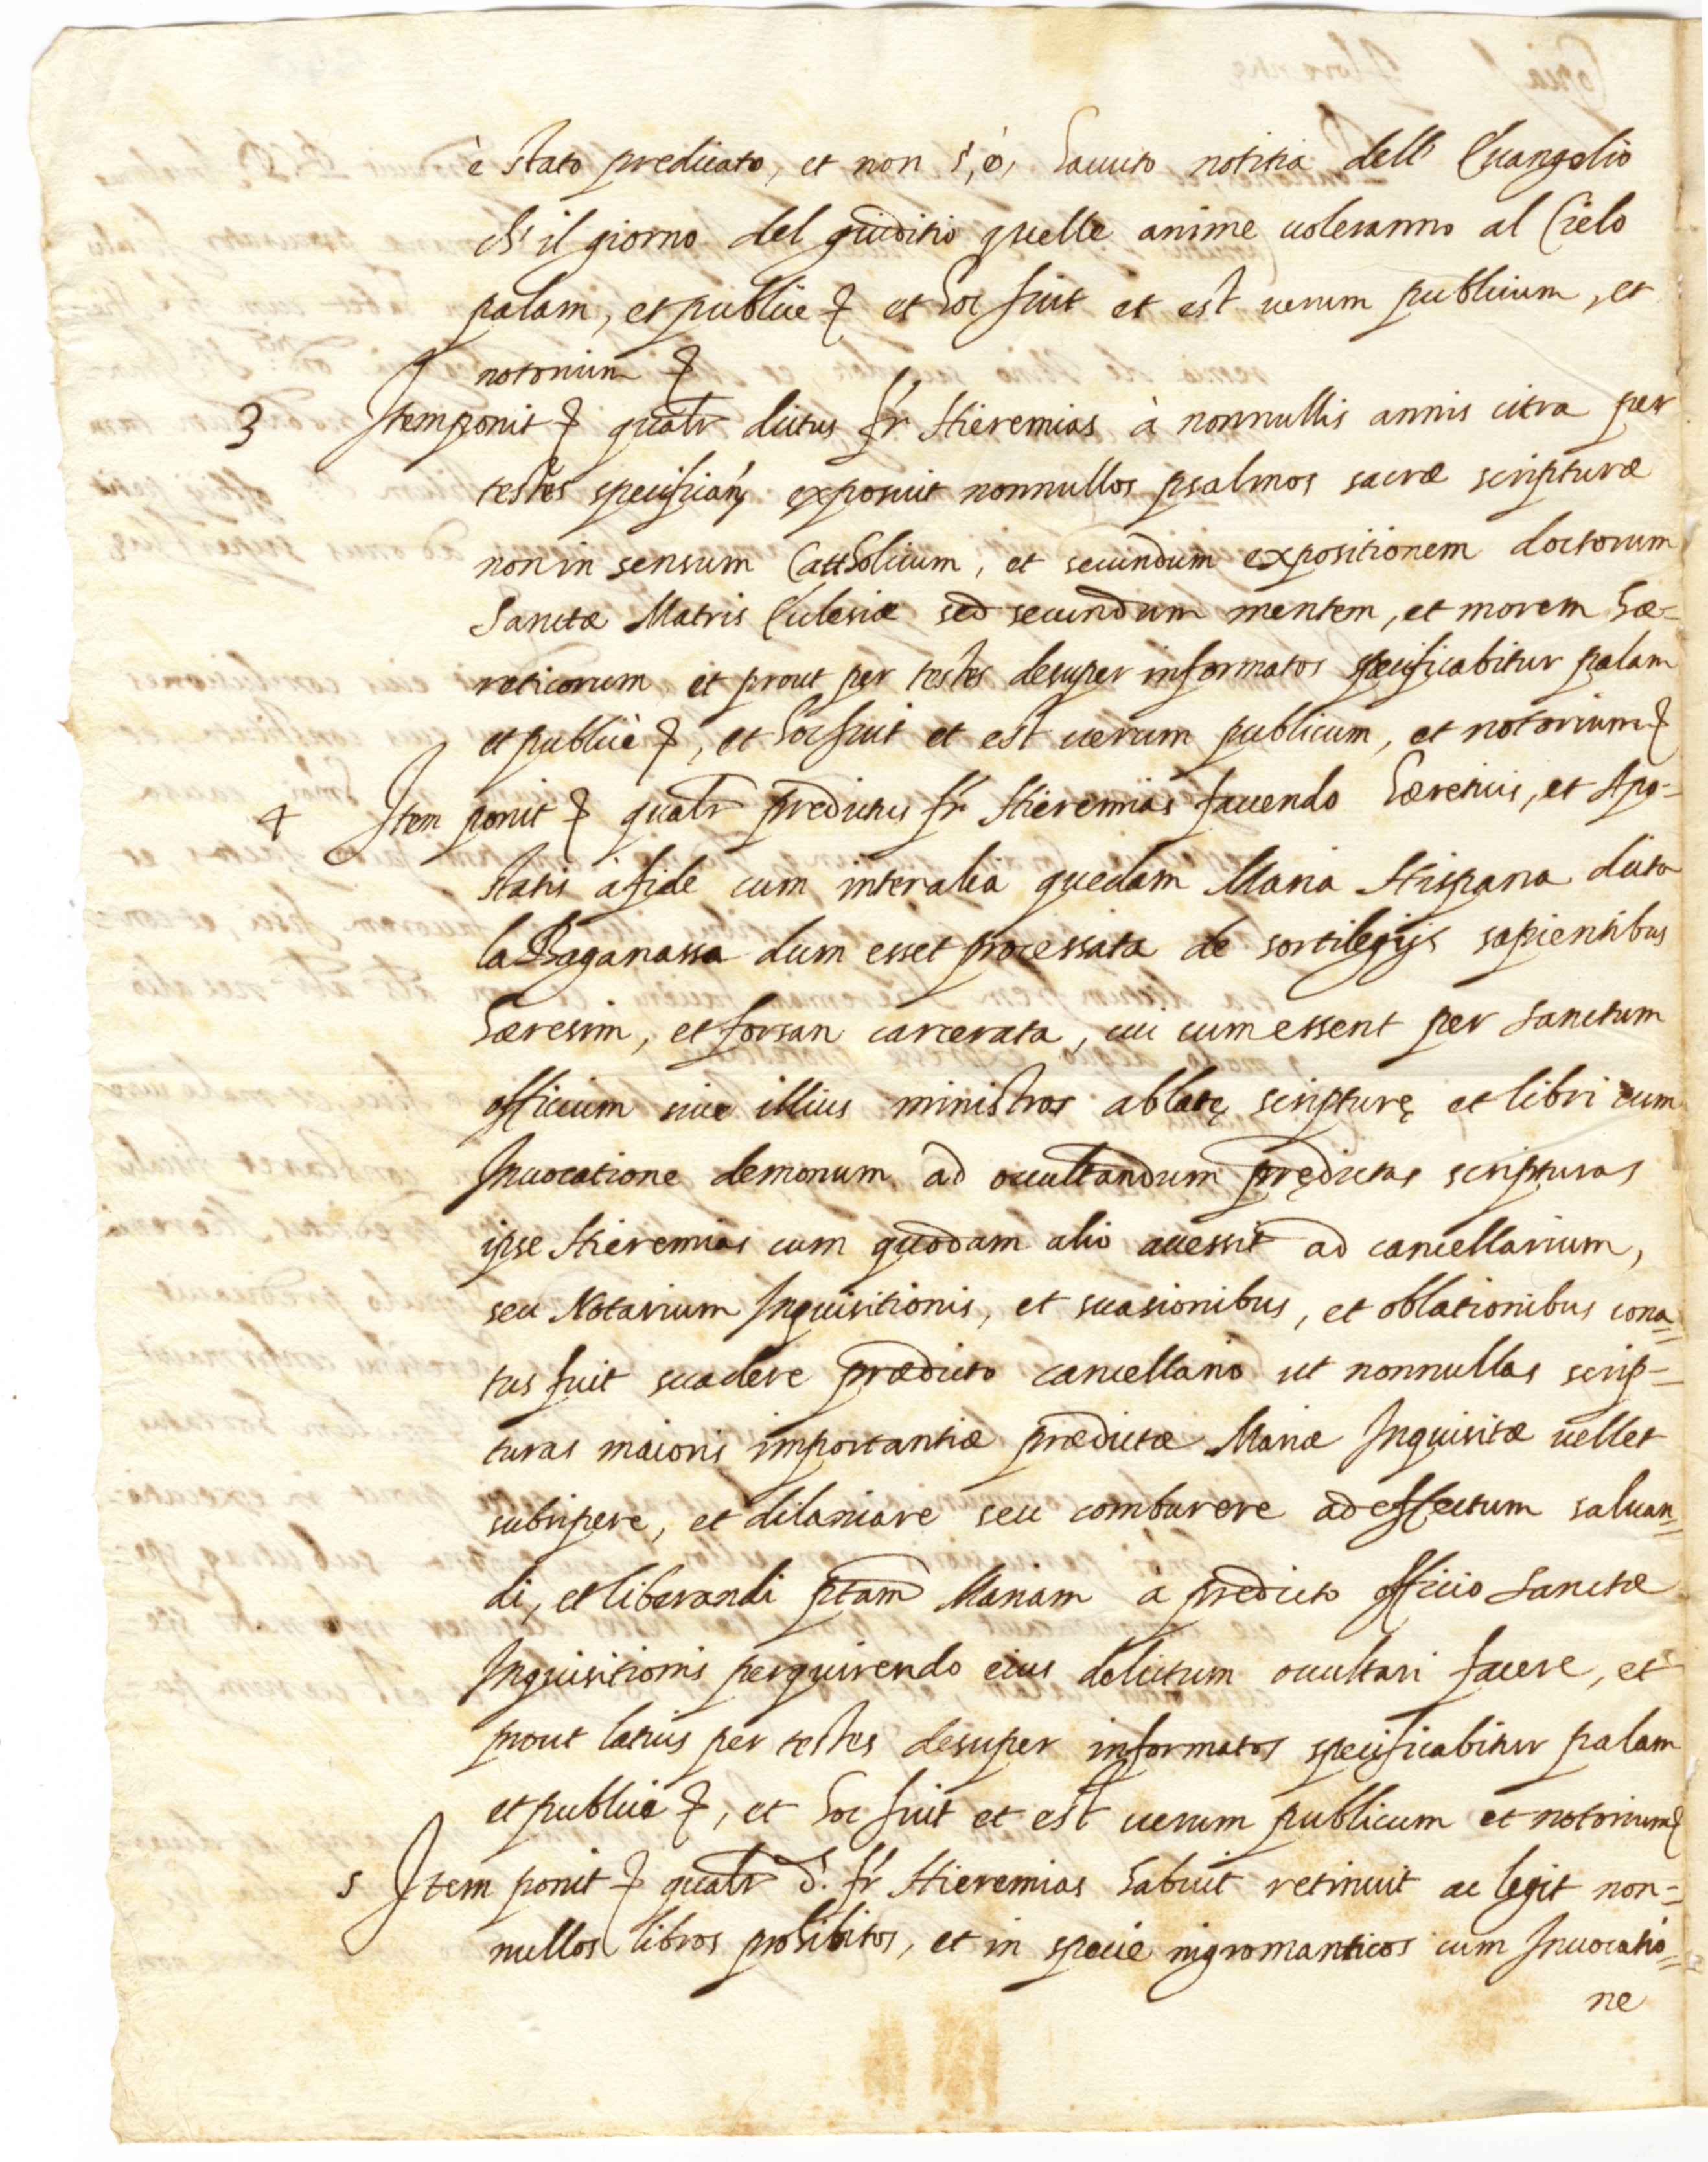 è stato predicato, et non s'è, hauuto notitia dell' Euangelio
ch' il giorno del giuditio quelle anime uoleranno al Cielo
palam, et publice &c et hoc fuit et est uerum publicum, et
notorium &c
3 Item ponit &c qualr dictus fr. Hieremias à nonnullis annis citra per
testes specificand exposuit nonnullos psalmos sacræ scripturæ
non in sensum Cattholicum, et secundum expositionem doctorum
Sanctæ Matris Ecclesiæ sed secundum mentem, et morem hæ-
reticorum et prout per testes desuper informatos specificabitur palam
et publicè &c, et hoc fuit et est uerum publicum, et notorium &c
4 Item ponit &c qualr predictus fr. Hieremias fauendo hæreticis, et Apo-
statis à fide cum inter alia quedam Maria Hispana dicta
la Paganassa dum esset processata de sortilegijs sapientibus
hæresim, et forsan carcerata, cui cum essent per Sanctum
officium siue illius ministros ablatę scripturę et libri cum
Inuocatione demonum ad occultandum prędictas scripturas
ipse Hieremias cum quodam alio accessit ad cancellarium,
seu Notarium Inquisitionis, et suasionibus, et oblationibus cona=
tus fuit suadere prædicto cancellario ut nonnullas scrip=
turas maioris importantiæ prædictæ Mariæ Inquisitæ uellet
subripere, et dilaniare seu comburere ad effectum saluan=
di, et liberandi ptam Mariam à predicto officio Sanctæ
Inquisitionis perquirendo eius delictum occultari facere, et
prout latius per testes desuper informatos specificabitur palam
et publicè &c, et hoc fuit et est uerum publicum et notorium &c
5 Item ponit &c qualr d. fr. Hieremias habuit retinuit ac legit non=
nullos libros prohibitos, et in specie nigromanticos cum Inuocatio=
ne